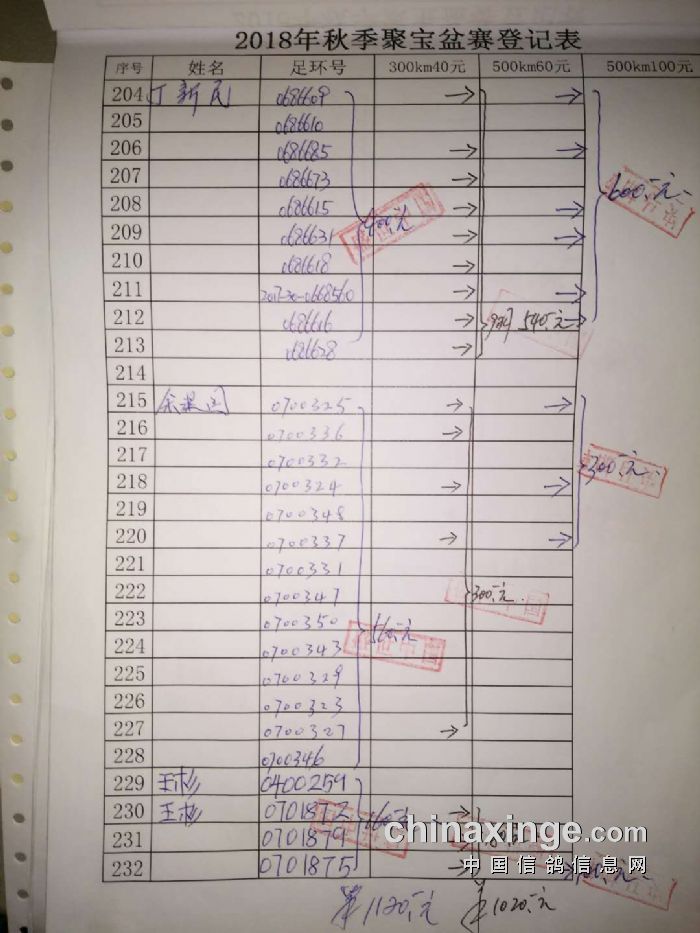 2018年秋季聚宝盆赛登记表
序号 姓名 足环号 300km40元 500km60元 500km100元
204 丁新民 0686609
205 0686610
206 0686685
207 0686673
208 0686615 600元
209 0686631 400元
210 0686618
211 2017-30-0668560
212 0686616 540元
213 0686628
214
215 0700325
216 0700336
217 0700332 300元
218 0700324
219 0700348
220 0700337
221 0700331
222 0700347 300元
223 0700350 560元
224 0700343
225 0700329
226 0700323
227 0700327
228 0700346
229 王杉 0400259
230 王杉 0701872 160元
231 0701879
232 0701875
chinaxinge.com
中国信鸽信息网
1120元 1020元